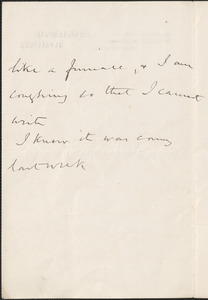 like a furnace, & I am
coughing so that I cannot
write
I know it was
last week